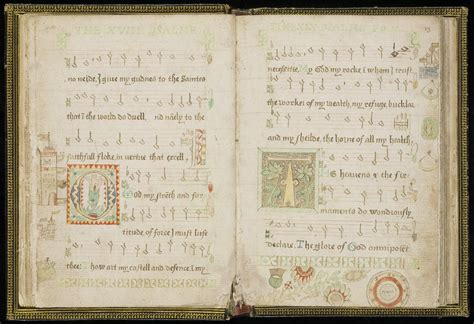 THE XVIII PSALM
no neide, I give my gudnes to the Saintes
that i the world do duell, nd naely to the
faithfull floke, in vertue that excell,
O God my strēth and for
titude of force I must lufe
thee how art my castell and defence, I my
necessitie, My God my rocke i whom I trust,
the worker of my wealth, my refuge, buckler
and my sheilde, the horne of all my health,
The heavens & the fir
maments do wondrously
declare, The glore of God omnipotet